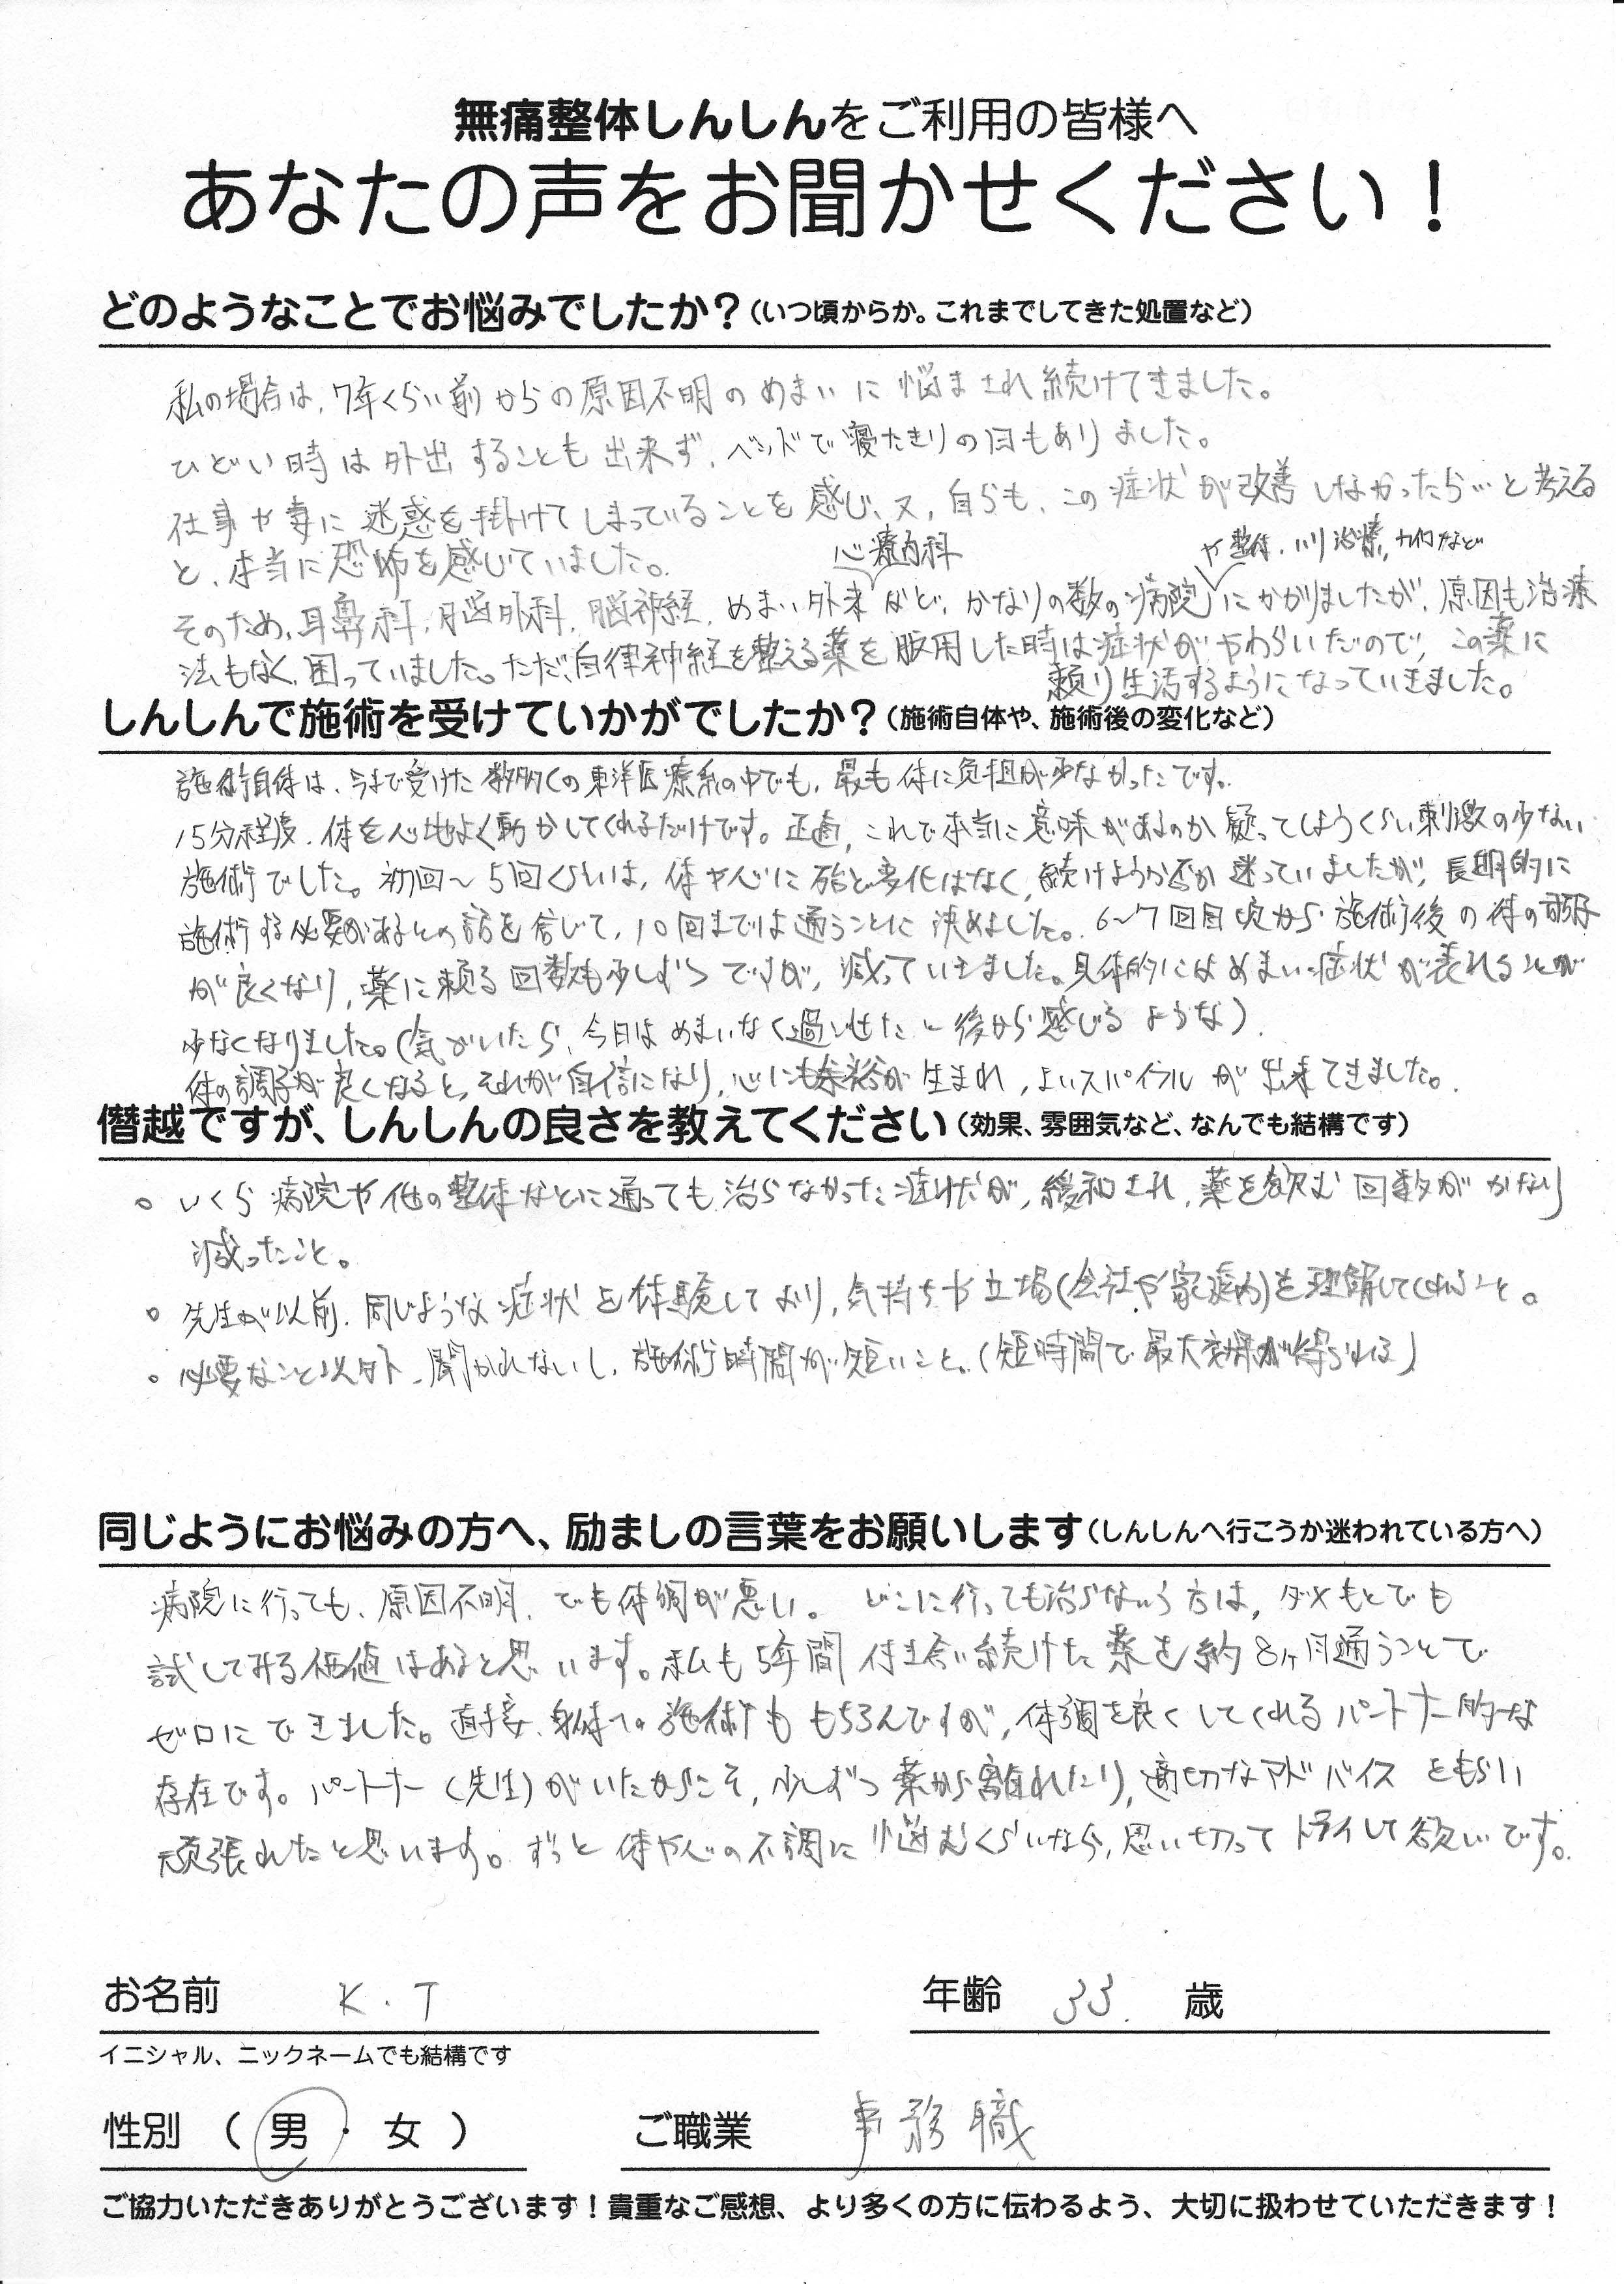 無痛整体しんしんをご利用の皆様へ
あなたの声をお聞かせください！
どのようなことでお悩みでしたか？（いつ頃からか。これまでしてきた処置など）
私の場合は、7年くらい前からの原因不明のめまいに悩まされ続けてきました。
ひどい時は外出することも出来ず、ベッドで寝たきりの日もありました。
仕事や妻に迷惑を掛けてしまっていることを感じ、又、自らも、この症状が改善しなかったら…と考える
と、本当に恐怖を感じていました。
心療内科
や整体、ハリ治療、カイロなど
そのため、耳鼻科、脳外科、脳神経、めまい外来など、かなりの数の病院にかかりましたが、原因も治療
法もなく、困っていました。ただ、自律神経を整える薬を服用した時は症状がやわらいだので、この薬に
頼り生活するようになっていきました。
しんしんで施術を受けていかがでしたか？（施術自体や、施術後の変化など）
施術自体は、今まで受けた数多くの東洋医療系の中でも、最も体に負担が少なかったです。
15分程度、体を心地よく動かしてくれるだけです。正直、これで本当に意味があるのか疑ってしまうくらい刺激の少ない
施術でした。初回～5回くらいは、体や心に殆ど変化はなく、続けようか否か迷っていましたが、長期的に
施術する必要があるとの話を信じて、10回までは通うことに決めました。6～7回目頃から施術後の体の調子
が良くなり、薬に頼る回数も少しずつですが、減っていきました。具体的にはめまい症状が表れることが
少なくなりました。（気がついたら、今日はめまいなく過ごせたと後から感じるような）
体の調子が良くなると、それが自信になり、心にも余裕が生まれ、よいスパイラルが出来てきました。
僭越ですが、しんしんの良さを教えてください（効果、雰囲気など、なんでも結構です）
。いくら病院や他の整体などに通っても治らなかった症状が、緩和され、薬を飲む回数がかなり
減ったこと。
。先生が以前、同じような症状を体験しており、気持ちや立場（会社や家庭内）を理解してくれること。
。必要なこと以外、聞かれないし、施術時間が短いこと。（短時間で最大効果が得られる）
同じようにお悩みの方へ、励ましの言葉をお願いします（しんしんへ行こうか迷われている方へ）
病院に行っても、原因不明、でも体調が悪い。どこに行っても治らないう方は、ダメもとでも
試してみる価値はあると思います。私も5年間付き合い続けた薬を約8ヶ月通うことで
ゼロにできました。直接、身体への施術ももちろんですが、体調を良くしてくれるパートナー的な
存在です。パートナー（先生）がいたからこそ、少しずつ薬から離れたり、適切なアドバイスをもらい
頑張れたと思います。ずっと体や心の不調に悩むくらいなら、思い切ってトライして欲しいです。
お名前 K.T 年齢 33. 歳
イニシャル、ニックネームでも結構です
性別（男・女） ご職業 事務職
ご協力いただきありがとうございます！貴重なご感想、より多くの方に伝わるよう、大切に扱わせていただきます！